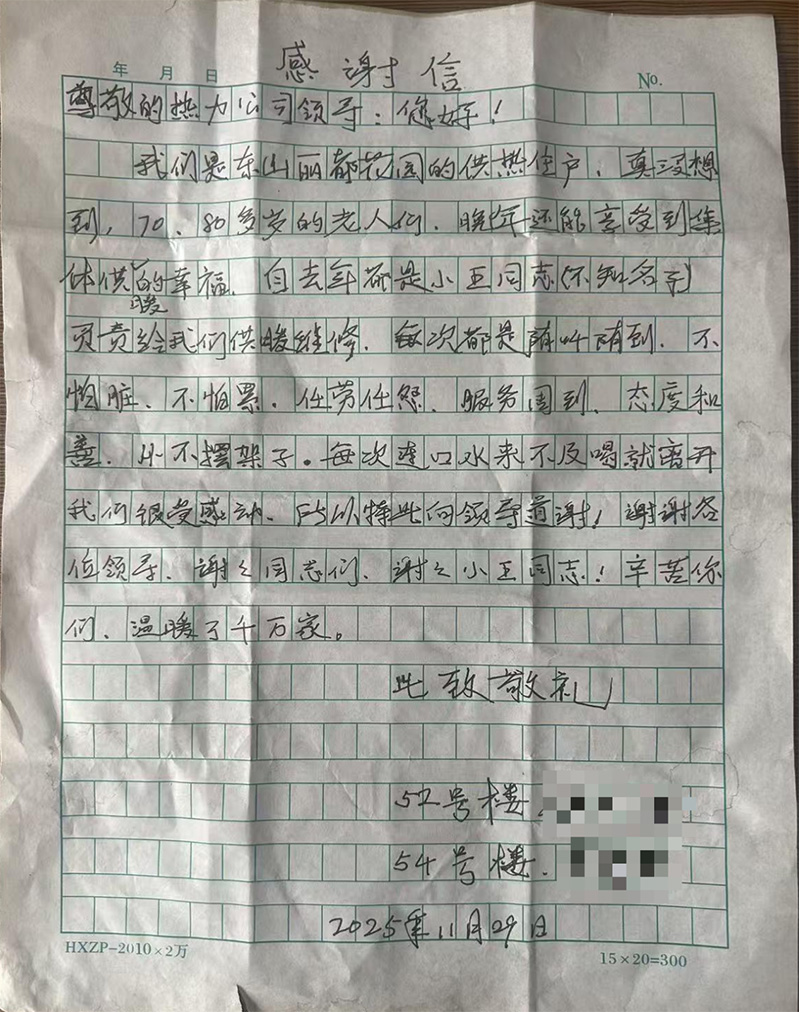 感谢信
年 月 日 No.
尊敬的热力公司领导：您好！
我们是东山丽都花园的供热住户，真没想
到，70、80多岁的老人们，晚年还能享受到集
体供暖的幸福，自去年都是小王同志（不知名字）
负责给我们供暖维修，每次都是随叫随到，不
怕脏、不怕累、任劳任怨、服务周到、态度和
善，从不摆架子。每次连口水来不及喝就离开
我们很受感动，所以特此向领导道谢！谢谢各
位领导，谢谢同志们，谢谢小王同志！辛苦你
们，温暖了千万家。
此致敬礼
52号楼
54号楼
2025年11月29日
HXZP-2010×2万 15×20=300